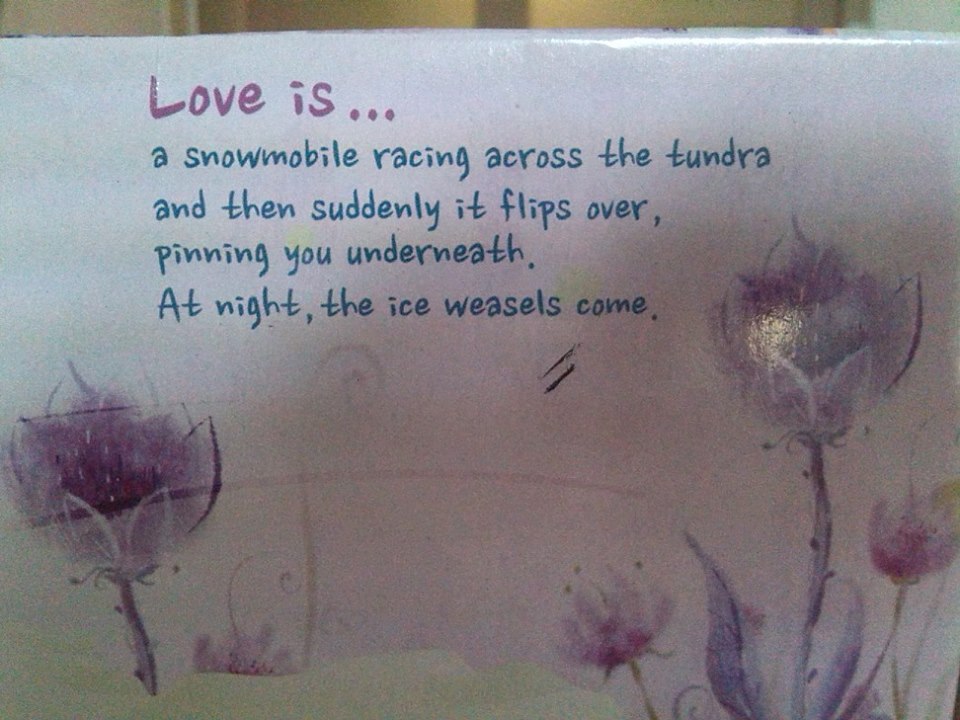 Love is...
a snowmobile racing across the tundra
and then suddenly it flips over,
pinning you underneath.
At night, the ice weasels come.